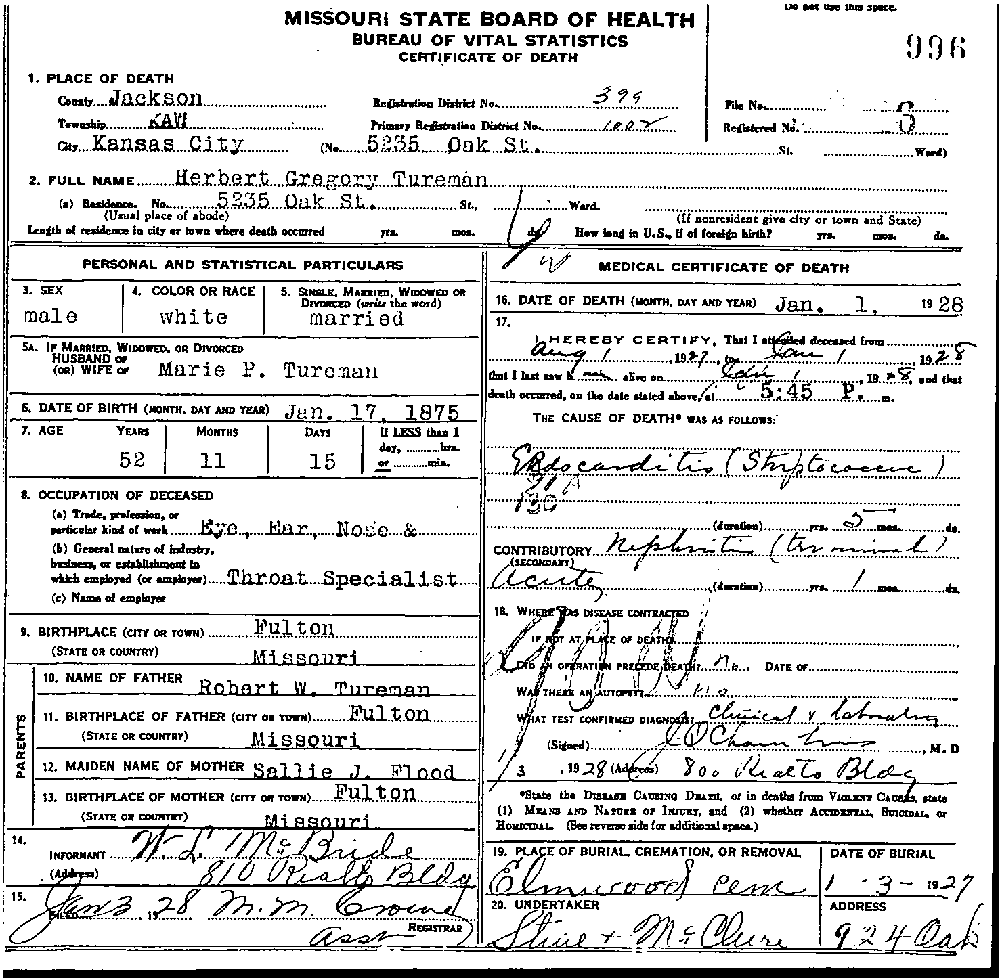 Do not use this space.
MISSOURI STATE BOARD OF HEALTH
BUREAU OF VITAL STATISTICS
CERTIFICATE OF DEATH
996
1. PLACE OF DEATH
County Jackson Registration District No. 399 File No.
Township KAW Primary Registration District No. 1002 Registered No. 8
City Kansas City (No. 5235 Oak St. St. Ward)
2. FULL NAME Herbert Gregory Tureman
(a) Residence. No. 5235 Oak St. St., Ward.
(Usual place of abode) (If nonresident give city or town and State)
Length of residence in city or town where death occurred yrs. mos. ds. How long in U.S., if of foreign birth? yrs. mos. ds.
PERSONAL AND STATISTICAL PARTICULARS
3. SEX 4. COLOR OR RACE 5. SINGLE, MARRIED, WIDOWED OR
DIVORCED (write the word)
male white married
5A. IF MARRIED, WIDOWED, OR DIVORCED
HUSBAND OF
(OR) WIFE OF Marie P. Tureman
6. DATE OF BIRTH (MONTH, DAY AND YEAR) Jan. 17, 1875
7. AGE YEARS MONTHS DAYS If LESS than 1
day, hrs.
52 11 15 or min.
8. OCCUPATION OF DECEASED
(a) Trade, profession, or
particular kind of work Eye, Ear, Nose &
(b) General nature of industry,
business, or establishment in
which employed (or employer) Throat Specialist
(c) Name of employer
9. BIRTHPLACE (CITY OR TOWN) Fulton
(STATE OR COUNTRY) Missouri
PARENTS
10. NAME OF FATHER Robert W. Tureman
11. BIRTHPLACE OF FATHER (CITY OR TOWN) Fulton
(STATE OR COUNTRY) Missouri
12. MAIDEN NAME OF MOTHER Sallie J. Flood
13. BIRTHPLACE OF MOTHER (CITY OR TOWN) Fulton
(STATE OR COUNTRY) Missouri
14.
INFORMANT W. L. McBride
(Address) 810 Rialto Bldg
15.
Jan 3 1928 M. M. Crowe
Asst REGISTRAR
MEDICAL CERTIFICATE OF DEATH
16. DATE OF DEATH (MONTH, DAY AND YEAR) Jan. 1, 1928
17.
I HEREBY CERTIFY, That I attended deceased from
Aug 1, 1927, to Jan 1, 1928
that I last saw him alive on Jan 1, 1928, and that
death occurred, on the date stated above, at 5:45 P. m.
THE CAUSE OF DEATH* WAS AS FOLLOWS:
Endocarditis (Streptococcus)
91A
130
(duration) yrs. 5 mos. ds.
CONTRIBUTORY Nephritis (terminal)
(SECONDARY)
Acute (duration) yrs. 1 mos. ds.
18. WHERE WAS DISEASE CONTRACTED
IF NOT AT PLACE OF DEATH?
DID AN OPERATION PRECEDE DEATH? No. DATE OF
WAS THERE AN AUTOPSY? No
WHAT TEST CONFIRMED DIAGNOSIS? Clinical & laboratory
(Signed) , M. D
3, 1928 (Address) 800 Rialto Bldg
*State the DISEASE CAUSING DEATH, or in deaths from VIOLENT CAUSES, state
(1) MEANS AND NATURE OF INJURY, and (2) whether ACCIDENTAL, SUICIDAL, or
HOMICIDAL. (See reverse side for additional space.)
19. PLACE OF BURIAL, CREMATION, OR REMOVAL DATE OF BURIAL
Elmwood Cem 1-3-1927
20. UNDERTAKER ADDRESS
Stine & McClure 924 Oak